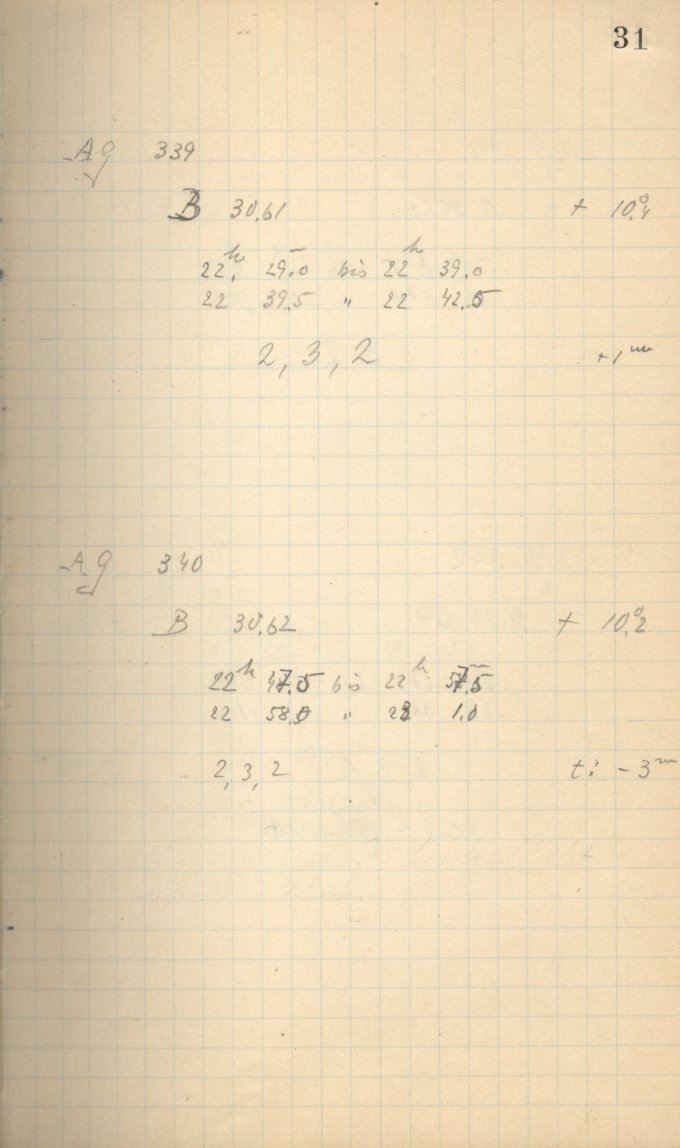 31
AG 339
B 30.61 + 10°.4
22h. 29.0 bis 22h 39.0
22 39.5 " 22 42.5
2, 3, 2 +1m
AG 340
B 30.62 + 10°.2
22h 47.5 bis 22h 57m.5
22 58.0 " 23 1.0
2, 3, 2 t: - 3m